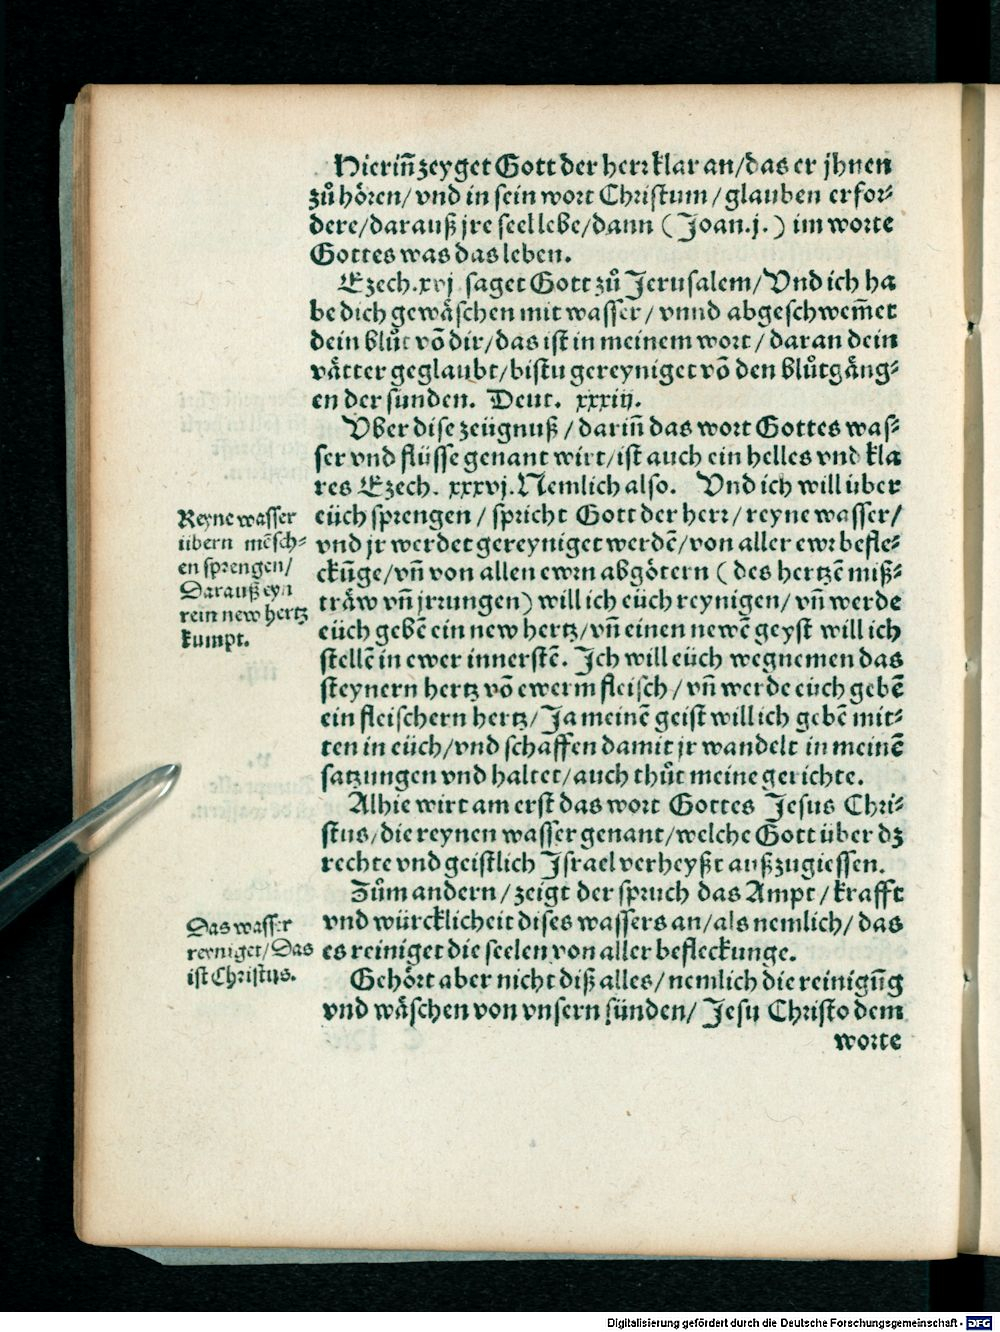 Hieriñ zeyget Gott der herr klar an/das er jhnen
zů hören/ vnd in sein wort Christum/glauben erfor⸗
dere/darauß jre seel lebe/dann (Joan.j.) im worte
Gottes was das leben.
Ezech.xvj saget Gott zů Jerusalem/Vnd ich ha
be dich gewäschen mit wasser/ vnnd abgeschwem̄et
dein blůt võ dir/das ist in meinem wort/ daran dein
vätter geglaubt/bistu gereyniget võ den blůtgäng⸗
en der sunden. Deut. xxxiij.
Vber dise zeügnuß/dariñ das wort Gottes was⸗
ser vnd flüsse genant wirt/ist auch ein helles vnd kla
res Ezech. xxxvj.Nemlich also. Vnd ich will über
Reyne wasser
übern mēsch⸗
en sprengen/
Darauß eyn
rein new hertz
kumpt.
eüch sprengen/ spricht Gott der herr/reyne wasser/
vnd jr werdet gereyniget werdē/von aller ewr befle⸗
ckūge/vñ von allen ewrn abgötern (des hertzē miß⸗
träw vñ jrrungen) will ich eüch reynigen/ vñ werde
eüch gebē ein new hertz/vñ einen newē geyst will ich
stellē in ewer innerstē. Ich will eüch wegnemen das
steynern hertz võ ewerm fleisch/vñ werde eüch gebē
ein fleischern hertz/Ja meinē geist will ich gebē mit⸗
ten in eüch/vnd schaffen damit jr wandelt in meinē
satzungen vnd haltet/auch thůt meine gerichte.
Alhie wirt am erst das wort Gottes Jesus Chri⸗
stus/die reynen wasser genant/welche Gott über dz
rechte vnd geistlich Israel verheyßt außzugiessen.
Zům andern/zeigt der spruch das Ampt/krafft
Das wasser
reyniget/Das
ist Christus.
vnd würcklicheit dises wassers an/als nemlich/das
es reiniget die seelen von aller befleckunge.
Gehört aber nicht diß alles/nemlich die reinigūg
vnd wäschen von vnsern sünden/ Jesu Christo dem
worte
Digitalisierung gefördert durch die Deutsche Forschungsgemeinschaft - DFG